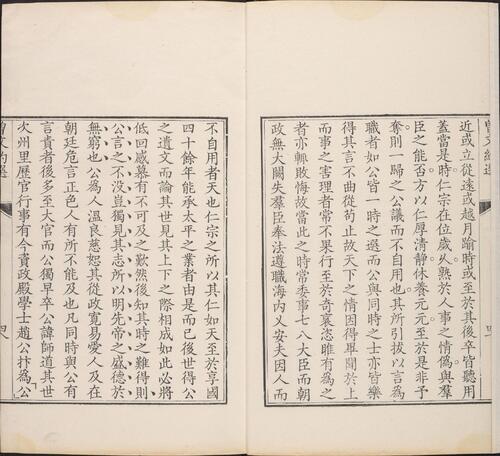 近或立從遠或越月踰時或至於其後卒皆聽用
蓋當是時仁宗在位歲久熟於人事之情僞與羣
臣之能否方以仁厚清靜休養元元至於是非予
奪則一歸之公議而不自用也其所引拔以言爲
職者如公皆一時之選而公與同時之士亦皆樂
得其言不曲從苟止故天下之情因得畢聞於上
而事之害理者常不果行至於奇袤恣睢有爲之
者亦輒敗悔故當此之時常委事七八大臣而朝
政無大闕失羣臣奉法遵職海內乂安夫因人而
不自用者天也仁宗之所以其仁如天至於享國
四十餘年能承太平之業者由是而已後世得公
之遺文而論其世見其上下之際相成如此必將
低回感慕有不可及之歎然後知其時之難得則
公言之不沒豈獨見其志所以明先帝之盛德於
無窮也公爲人溫良慈恕其從政寬易愛人及在
朝廷危言正色人有所不能及也凡同時與公有
言責者後多至大官而公獨早卒公諱師道其世
次州里歷官行事有今資政殿學士趙公抃爲公